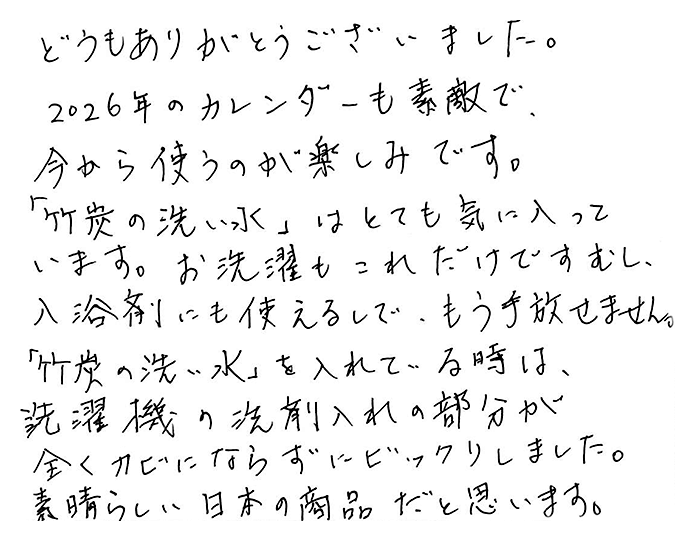 どうもありがとうございました。
2026年のカレンダーも素敵で、
今から使うのが楽しみです。
「竹炭の洗い水」はとても気に入って
います。お洗濯もこれだけですむし、
入浴剤にも使えるしで、もう手放せません。
「竹炭の洗い水」を入れている時は、
洗濯機の洗剤入れの部分が
全くカビにならずにビックリしました。
素晴らしい日本の商品だと思います。